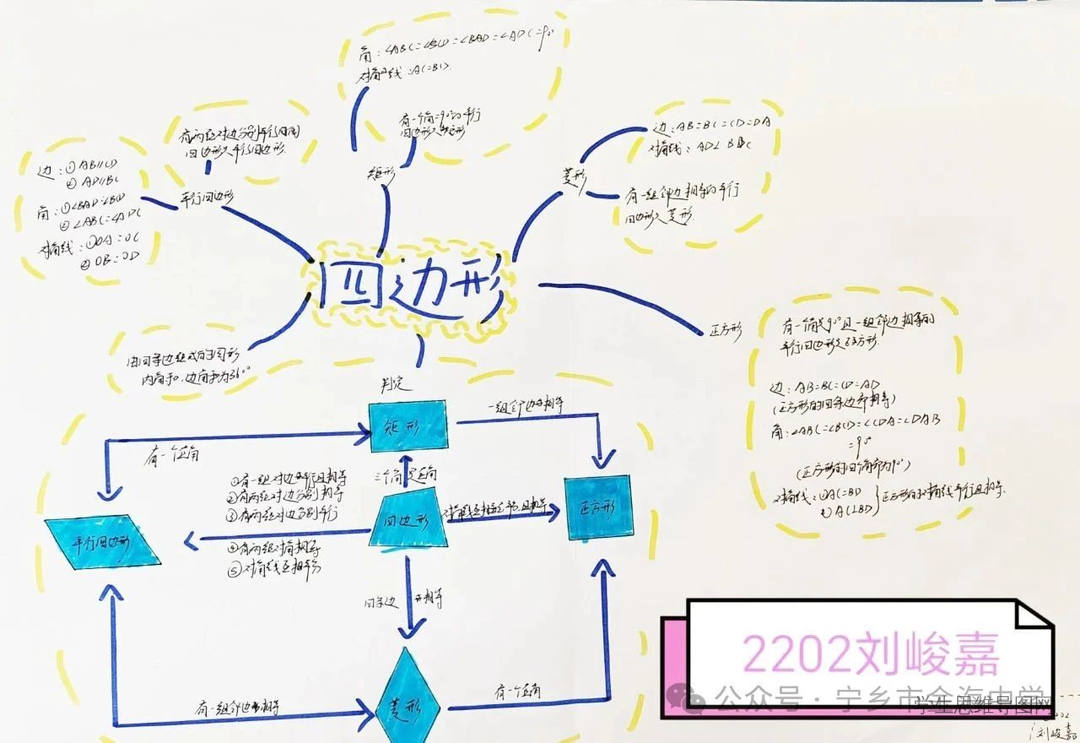 角：∠ABC=∠BCD=∠BAD=∠ADC=90°
对角线：AC=BD.
有一个角=90°的平行
四边形是矩形
矩形
有两组对边分别平行的四
边形是平行四边形.
平行四边形
边：①AB//CD
②AD//BC
角：①∠BAD=∠BCD
②∠ABC=∠ADC
对角线：①OA=OC
②OB=OD
菱形
边：AB=BC=CD=DA
对角线：
有一组邻边相等的平行
四边形是菱形
四边形
正方形
有一个角是90°且一组邻边相等的
平行四边形是正方形.
边：AB=BC=CD=AD
(正方形的四条边都相等)
角：∠ABC=∠BCD=∠CDA=∠DAB
=90°
(正方形的四个角都为90°)
对角线：①AC=BD
②AC⊥BD
正方形的对角线平行且相等.
由四条边组成的图形
内角和、边角和为360°
判定
矩形
一组邻边相等
有一个直角
三个角是直角
①有一组对边平行且相等
②有两组对边分别相等
③有两组对边分别平行
四边形
对角线互相垂直平分且相等
正方形
平行四边形
④有两组对角相等
⑤对角线互相平分
四条边
都相等
有一组邻边相等
菱形
有一个直角
2202刘峻嘉
公众号·宁乡市金海中学
学生思维导图网
2202
刘峻嘉